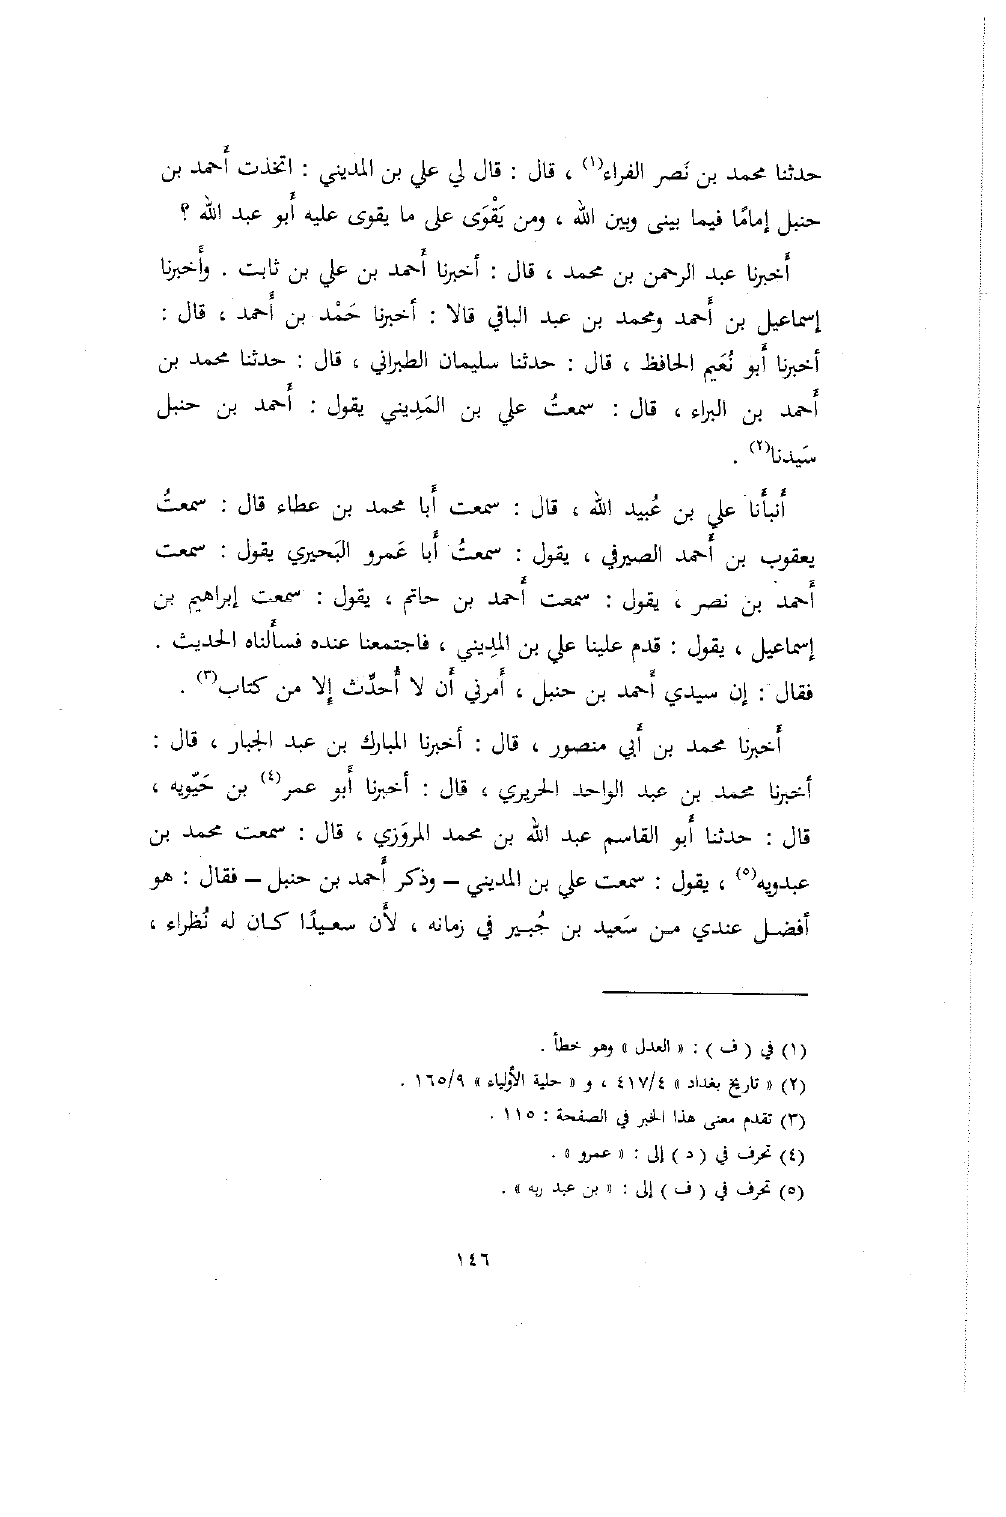 حدثنا محمد بن نَصر الفراء(١) ، قال : قال لي علي بن المديني : اتخذت أَحمد بن
حنبل إمامًا فيما بيني وبين الله ، ومن يَقْوَى على ما يقوى عليه أَبو عبد الله ؟
أَخبرنا عبد الرحمن بن محمد ، قال : أخبرنا أَحمد بن علي بن ثابت . وأَخبرنا
إسماعيل بن أَحمد ومحمد بن عبد الباقي قالا : أخبرنا حَمْد بن أَحمد ، قال :
أخبرنا أَبو نُعَيم الحافظ ، قال : حدثنا سليمان الطبراني ، قال : حدثنا محمد بن
أَحمد بن البراء ، قال : سمعتُ علي بن المَدِيني يقول : أَحمد بن حنبل
سَيدنا(٢) .
أَنبأَنا علي بن عُبيد الله ، قال : سمعت أَبا محمد بن عطاء قال : سمعتُ
يعقوب بن أَحمد الصيرفي ، يقول : سمعتُ أَبا عَمرو البَحيري يقول : سمعت
أَحمد بن نصر ، يقول : سمعت أَحمد بن حاتم ، يقول : سمعت إبراهيم بن
إسماعيل ، يقول : قدم علينا علي بن المدِيني ، فاجتمعنا عنده فسأَلناه الحديث .
فقال : إن سيدي أَحمد بن حنبل ، أَمرني أَن لا أُحدِّث إلا من كتاب(٣) .
أَخبرنا محمد بن أَبي منصور ، قال : أخبرنا المبارك بن عبد الجبار ، قال :
أخبرنا محمد بن عبد الواحد الحريري ، قال : أخبرنا أَبو عمر(٤) بن حَيّويه ،
قال : حدثنا أَبو القاسم عبد الله بن محمد المروَزي ، قال : سمعت محمد بن
عبدويه(٥) ، يقول : سمعت علي بن المديني – وذكر أَحمد بن حنبل – فقال : هو
أفضل عندي من سَعيد بن جُبير في زمانه ، لأَن سعيدًا كان له نُظراء ،
(١) في ( ف ) : « العدل » وهو خطأ .
(٢) « تاريخ بغداد » ٤١٧/٤ ، و « حلية الأَولياء » ١٦٥/٩ .
(٣) تقدم معنى هذا الخبر في الصفحة : ١١٥ .
(٤) تحرف في ( د ) إلى : « عمرو » .
(٥) تحرف في ( ف ) إلى : « بن عبد ربه » .
١٤٦